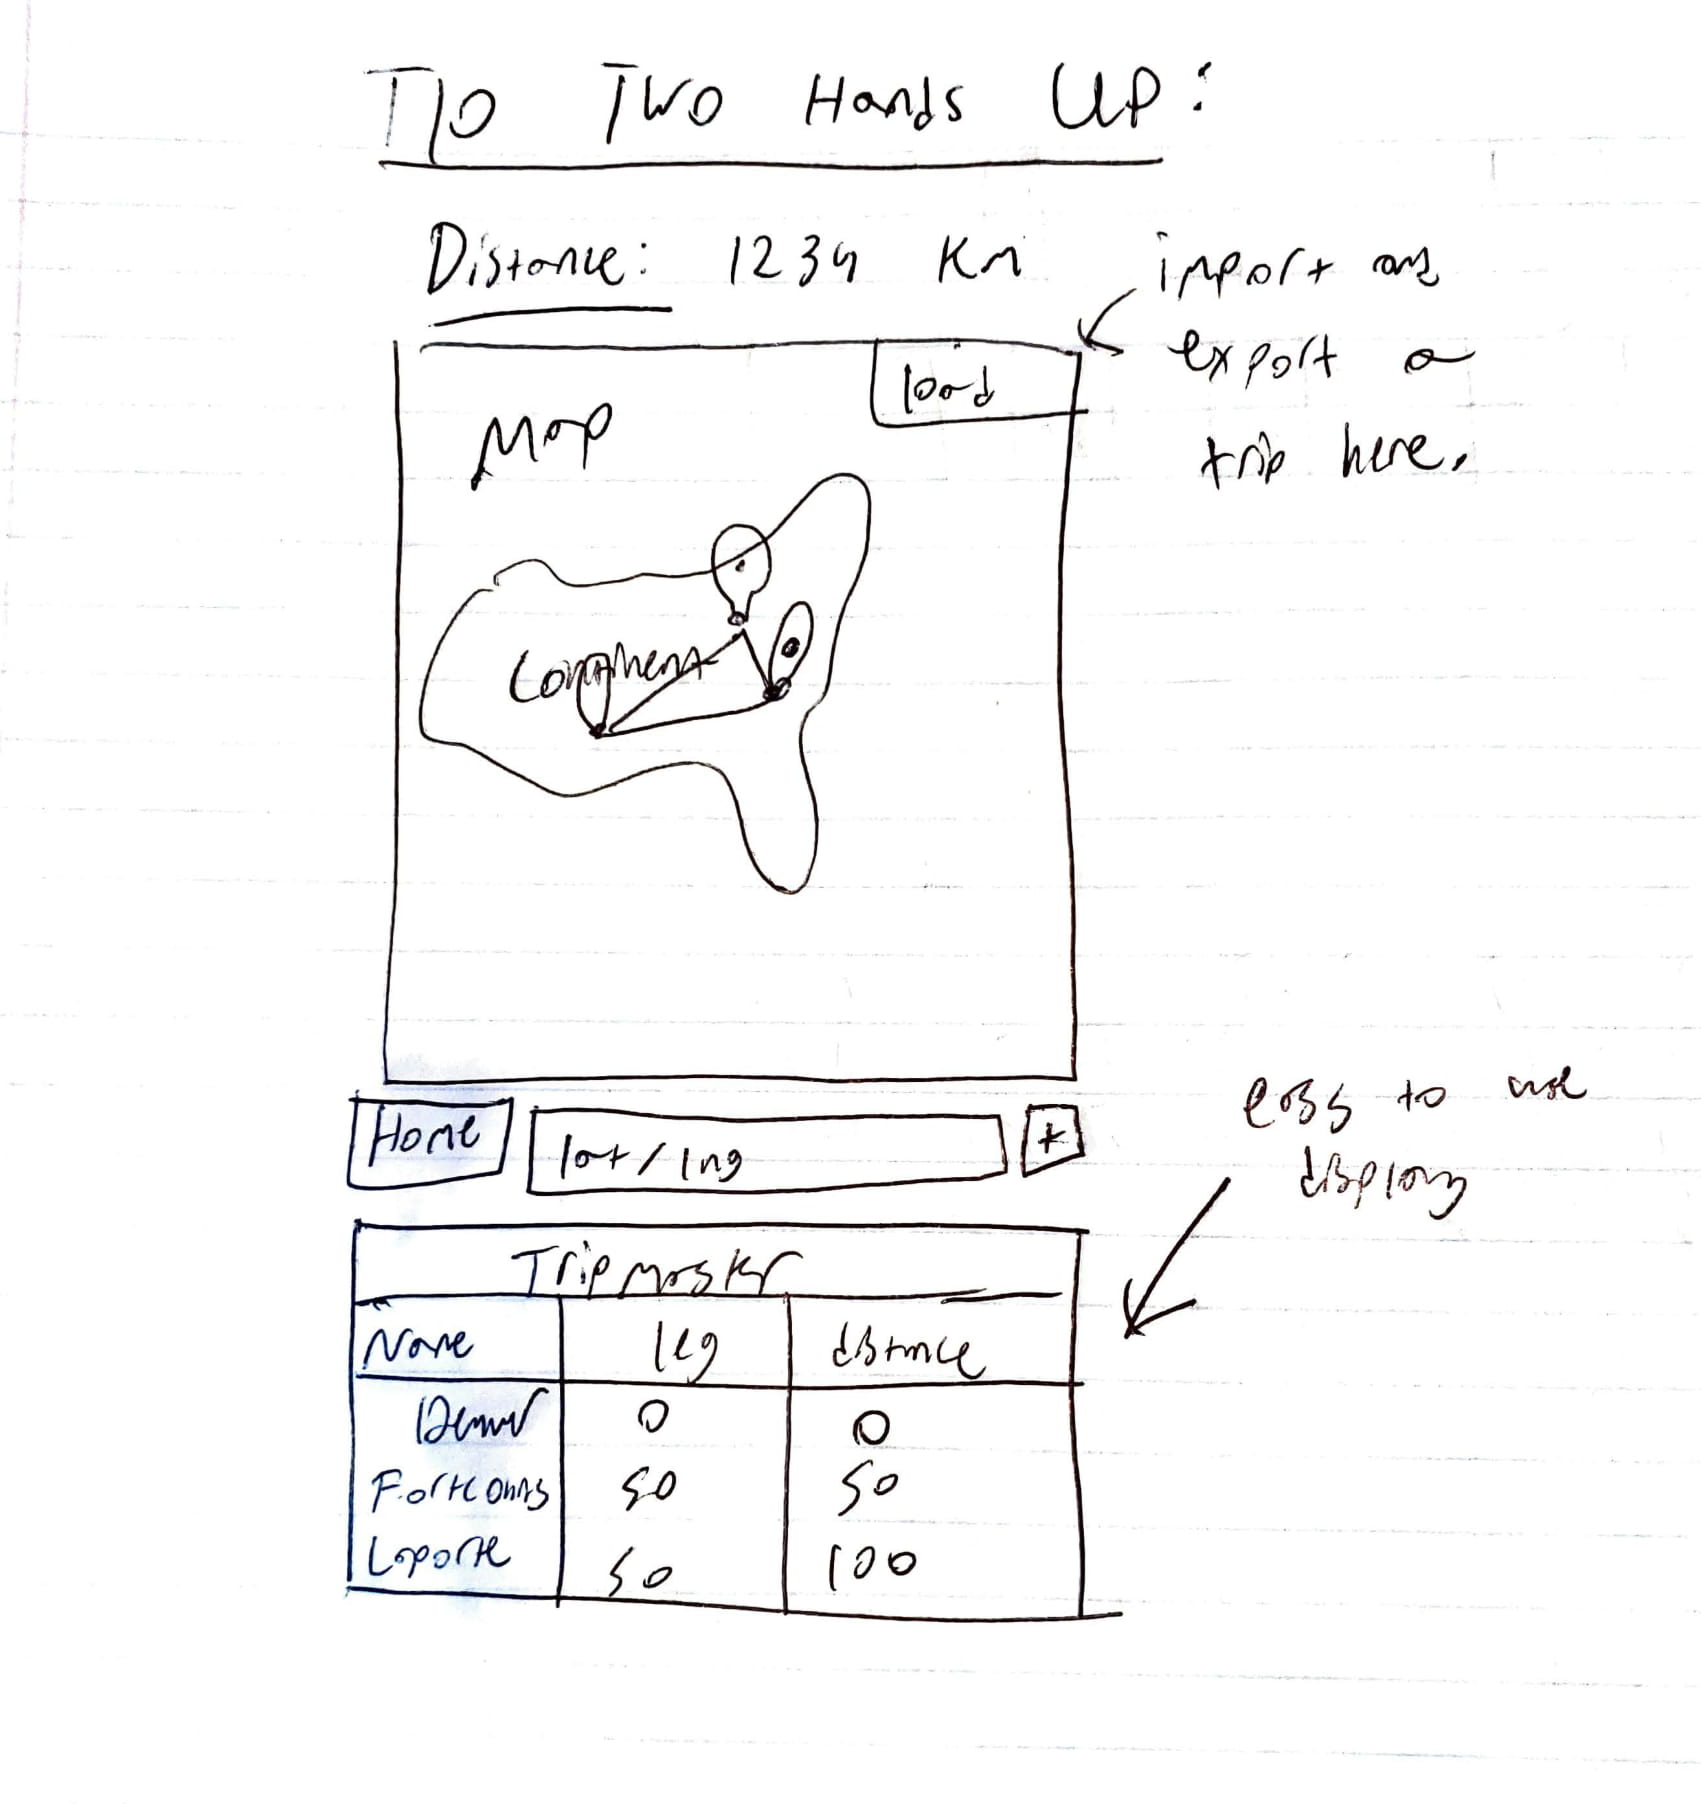 T10 Two Hands Up:
Distance: 1234 Km
import and
export a
trip here.
load
Map
Continent
easy to use
display
Home
lat / lng
+
Trip master
Name leg distance
Denver 0 0
Fort Collins 50 50
Laporte 50 100